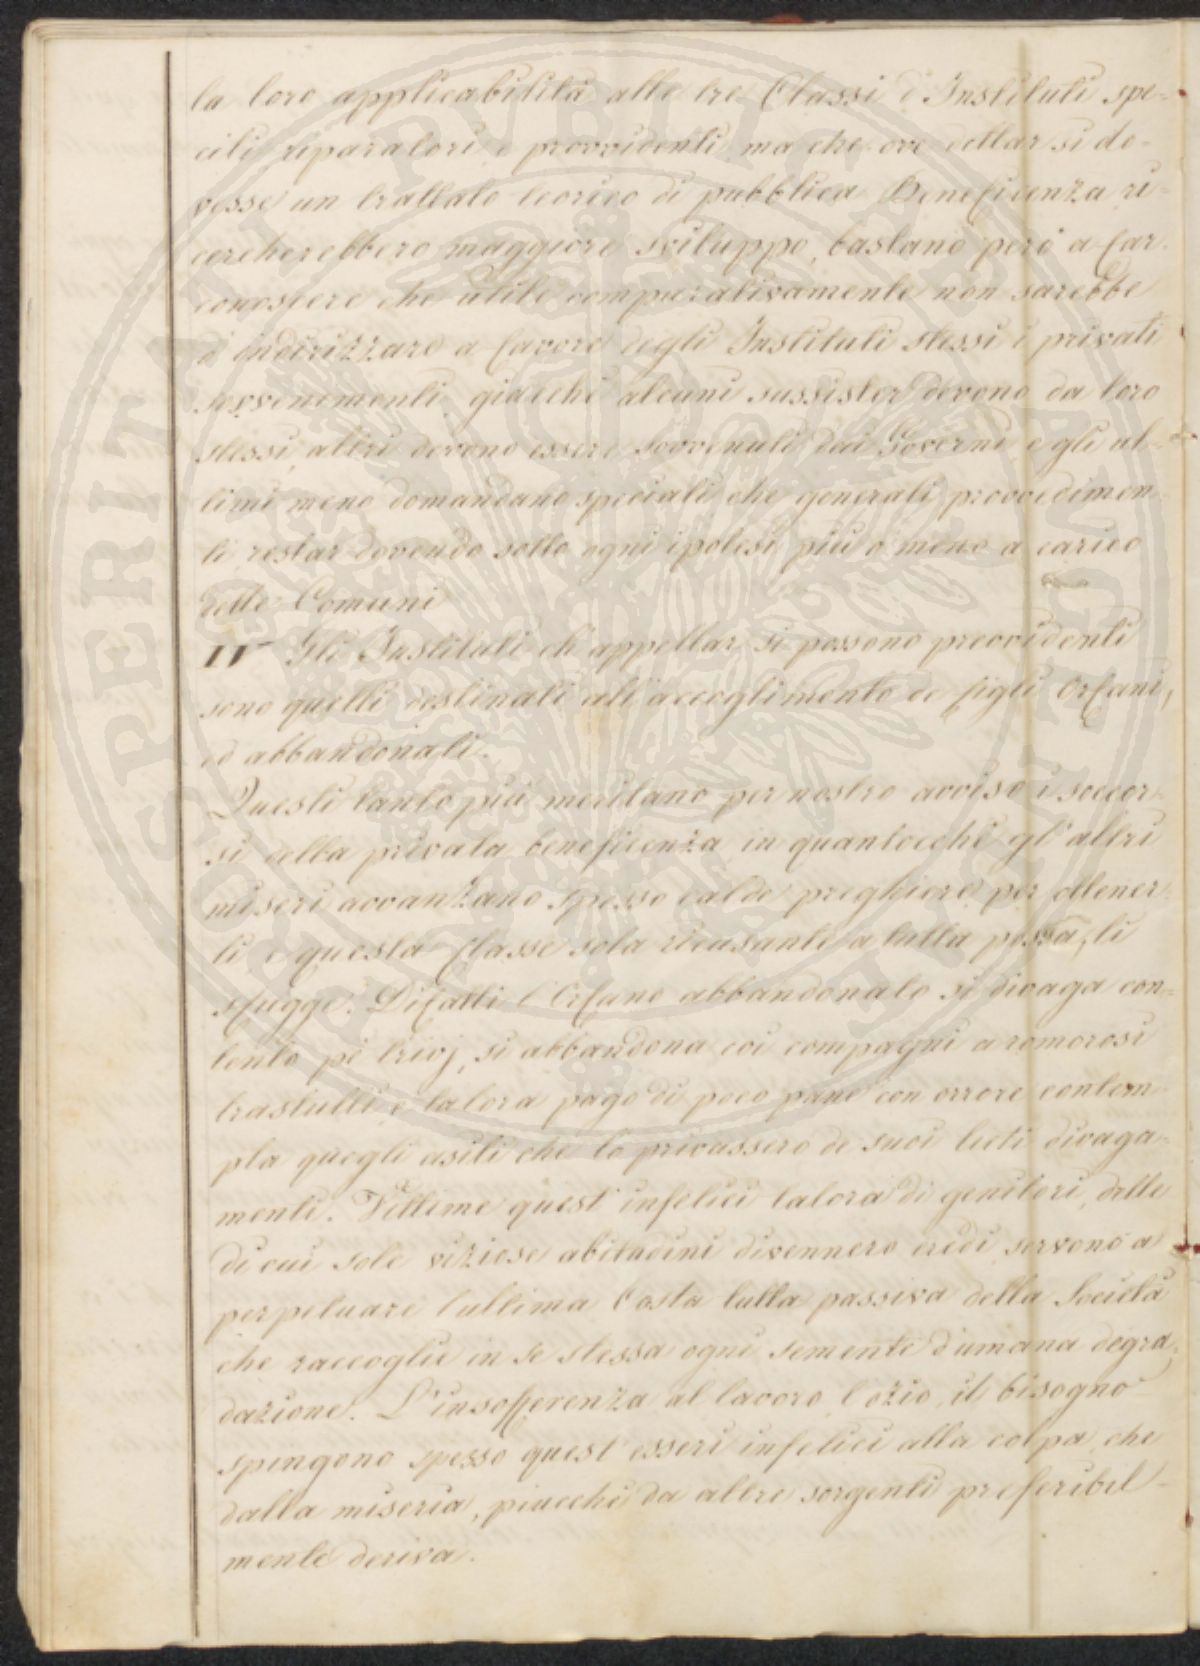 la loro applicabilità alle tre Classi d'Instituti spe-
cili riparatori e provvidenti, ma che ove dettar si do-
vesse un trattato teorico di pubblica Beneficenza ri-
cercherebbero maggiore sviluppo, bastano però a far
conoscere che utile comparativamente non sarebbe
d'indirizzare a favore degli Instituti stessi i privati
sovvenimenti, giacchè alcuni sussister devono da loro
stessi, altri devono essere sovvenuti dai Governi e gli ul-
timi meno domandano speciali che generali provvedimen-
ti restar dovendo sotto ogni ipotesi più o meno a carico
delle Comuni
IV Gli Instituti ch'appellar si possono preovvidenti
sono quelli destinati all'accoglimento de figli Orfani,
ed abbandonati.
Questi tanto più meritano per nostro avviso i soccor-
si della privata beneficenza in quantocchè gl'altri
miseri avvanzano spesso calde preghiere per ottener-
li e questa Classe sola ricusanti a tutta possa, li
sfugge. Difatti l'Orfano abbandonato si divaga con-
tento pè trivj, si abbandona coi compagni a romorosi
trastulli e talora pago di poco pane con orrore contem-
pla quegli asili che lo privassero de suoi lieti divaga-
menti. Vittime quest'infelici talora di genitori, delle
di cui sole viziose abitudini divennero eredi servono a
perpetuare l'ultima Casta tutta passiva della Società
che raccoglie in se stessa ogni semente d'umana degra-
dazione. L'insofferenza al lavoro l'ozio, il bisogno
spingono spesso quest'esseri infelici alla colpa, che
dalla miseria, piucchè da altre sorgenti preferibil-
mente deriva.
SPERITATI PVBLICAE